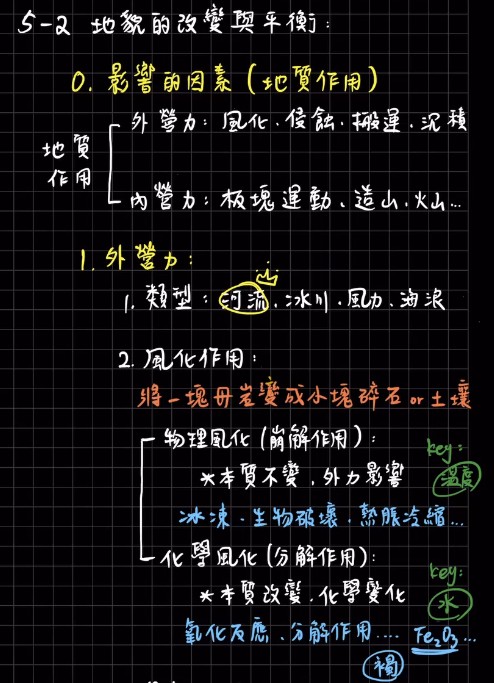 5-2 地貌的改變與平衡:
0. 影響的因素(地質作用)
地質作用
外營力: 風化、侵蝕、搬運、沉積
內營力: 板塊運動、造山、火山...
1. 外營力:
1. 類型: 河流、冰川、風力、海浪
2. 風化作用:
將一塊母岩變成小塊碎石or土壤
物理風化(崩解作用):
key: 溫度
*本質不變、外力影響
冰凍、生物破壞、熱脹冷縮...
化學風化(分解作用):
key: 水
*本質改變、化學變化
氧化反應、分解作用.... Fe₂O₃...
褐